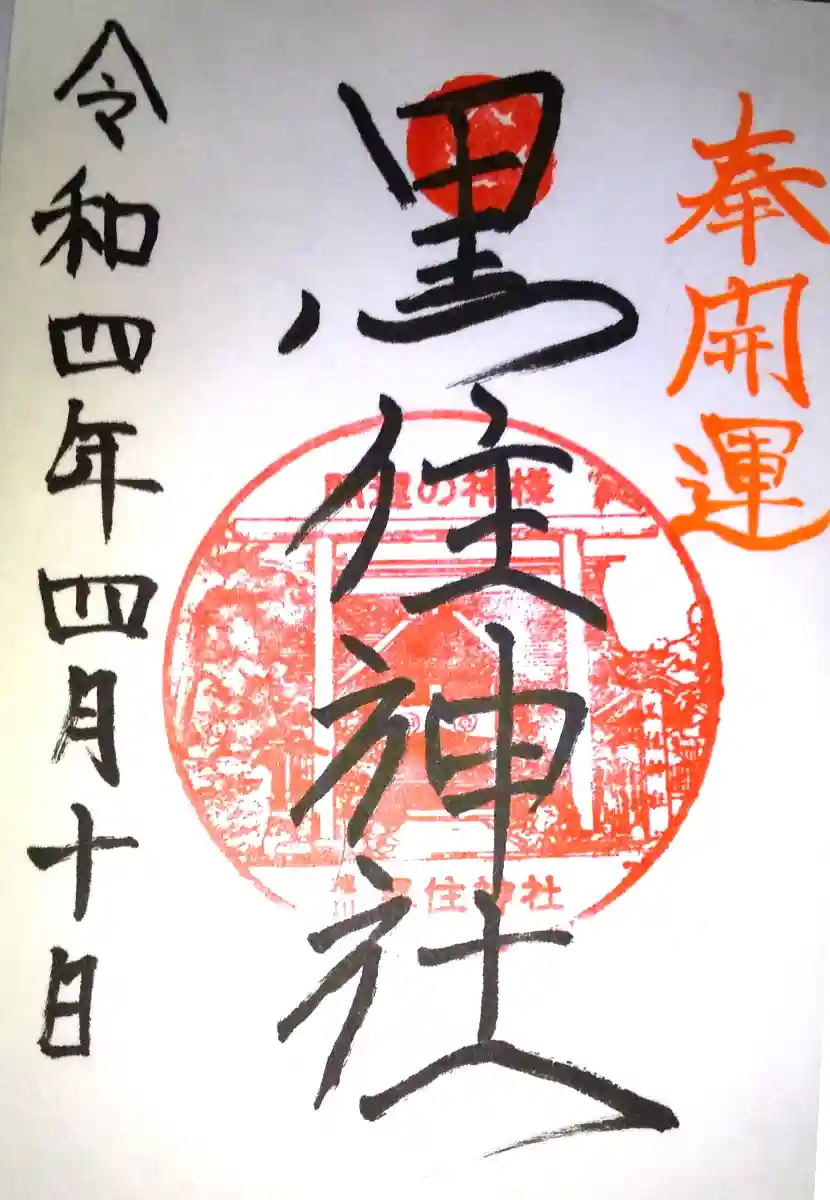 奉開運
黒住神社
開運の神様
黒住神社
令和四年四月十日